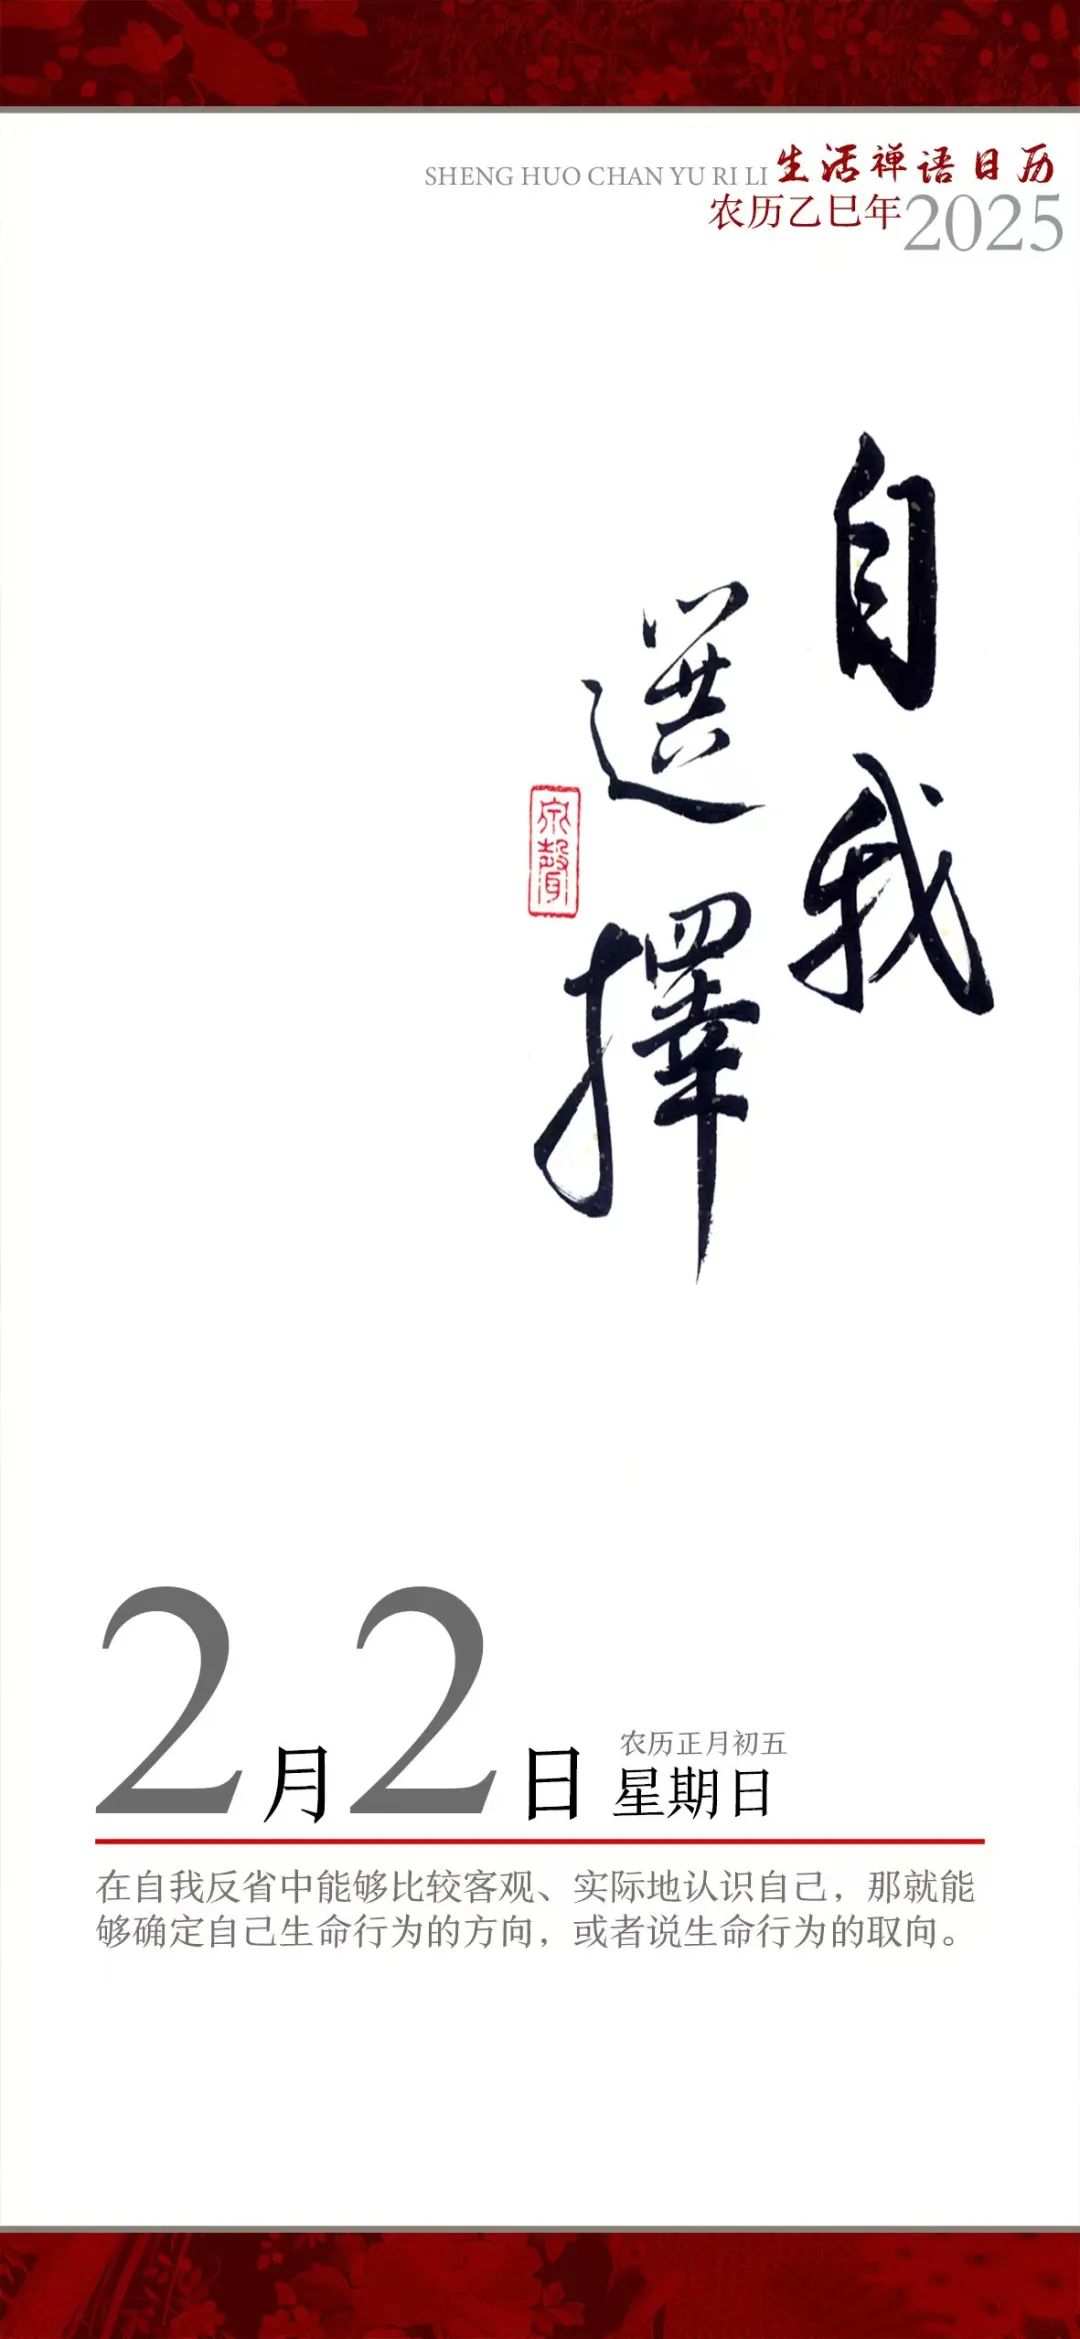 SHENG HUO CHAN YU RI LI 生活禅语日历
农历乙巳年 2025
自我
選擇
宗聲
2月2日 农历正月初五
星期日
在自我反省中能够比较客观、实际地认识自己，那就能
够确定自己生命行为的方向，或者说生命行为的取向。